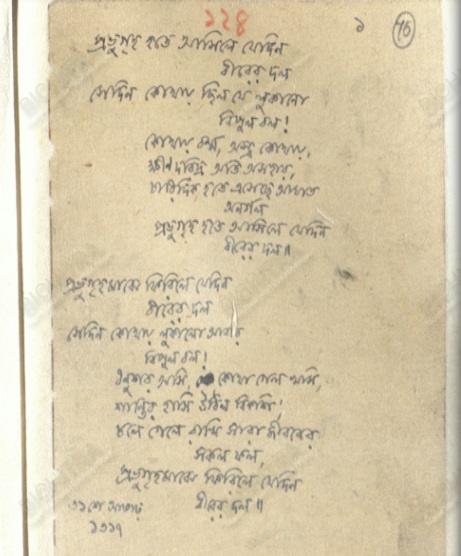 ১২৪
১ 76
প্রভুগৃহ হতে আসিলে যেদিন
বীরের দল
সেদিন কোথায় ছিল যে লুকানো
বিপুল বল!
কোথায় বর্ম্ম, অস্ত্র কোথায়,
ক্ষীণ দরিদ্র অতি অসহায়,
চারিদিক হতে এসেছে আঘাত
অনর্গল
প্রভুগৃহ হতে আসিলে যেদিন
বীরের দল॥
প্রভুগৃহমাঝে ফিরিলে যেদিন
বীরের দল
সেদিন কোথায় লুকালো আবার
বিপুল বল!
ধনুশর অসি, কোথা গেল খসি,
শান্তির হাসি উঠিল বিকশি;
চলে গেলে রাখি সারা জীবনের
সকল ফল,
প্রভুগৃহমাঝে ফিরিলে যেদিন
বীরের দল॥
৩১শে আষাঢ়
১৩১৭